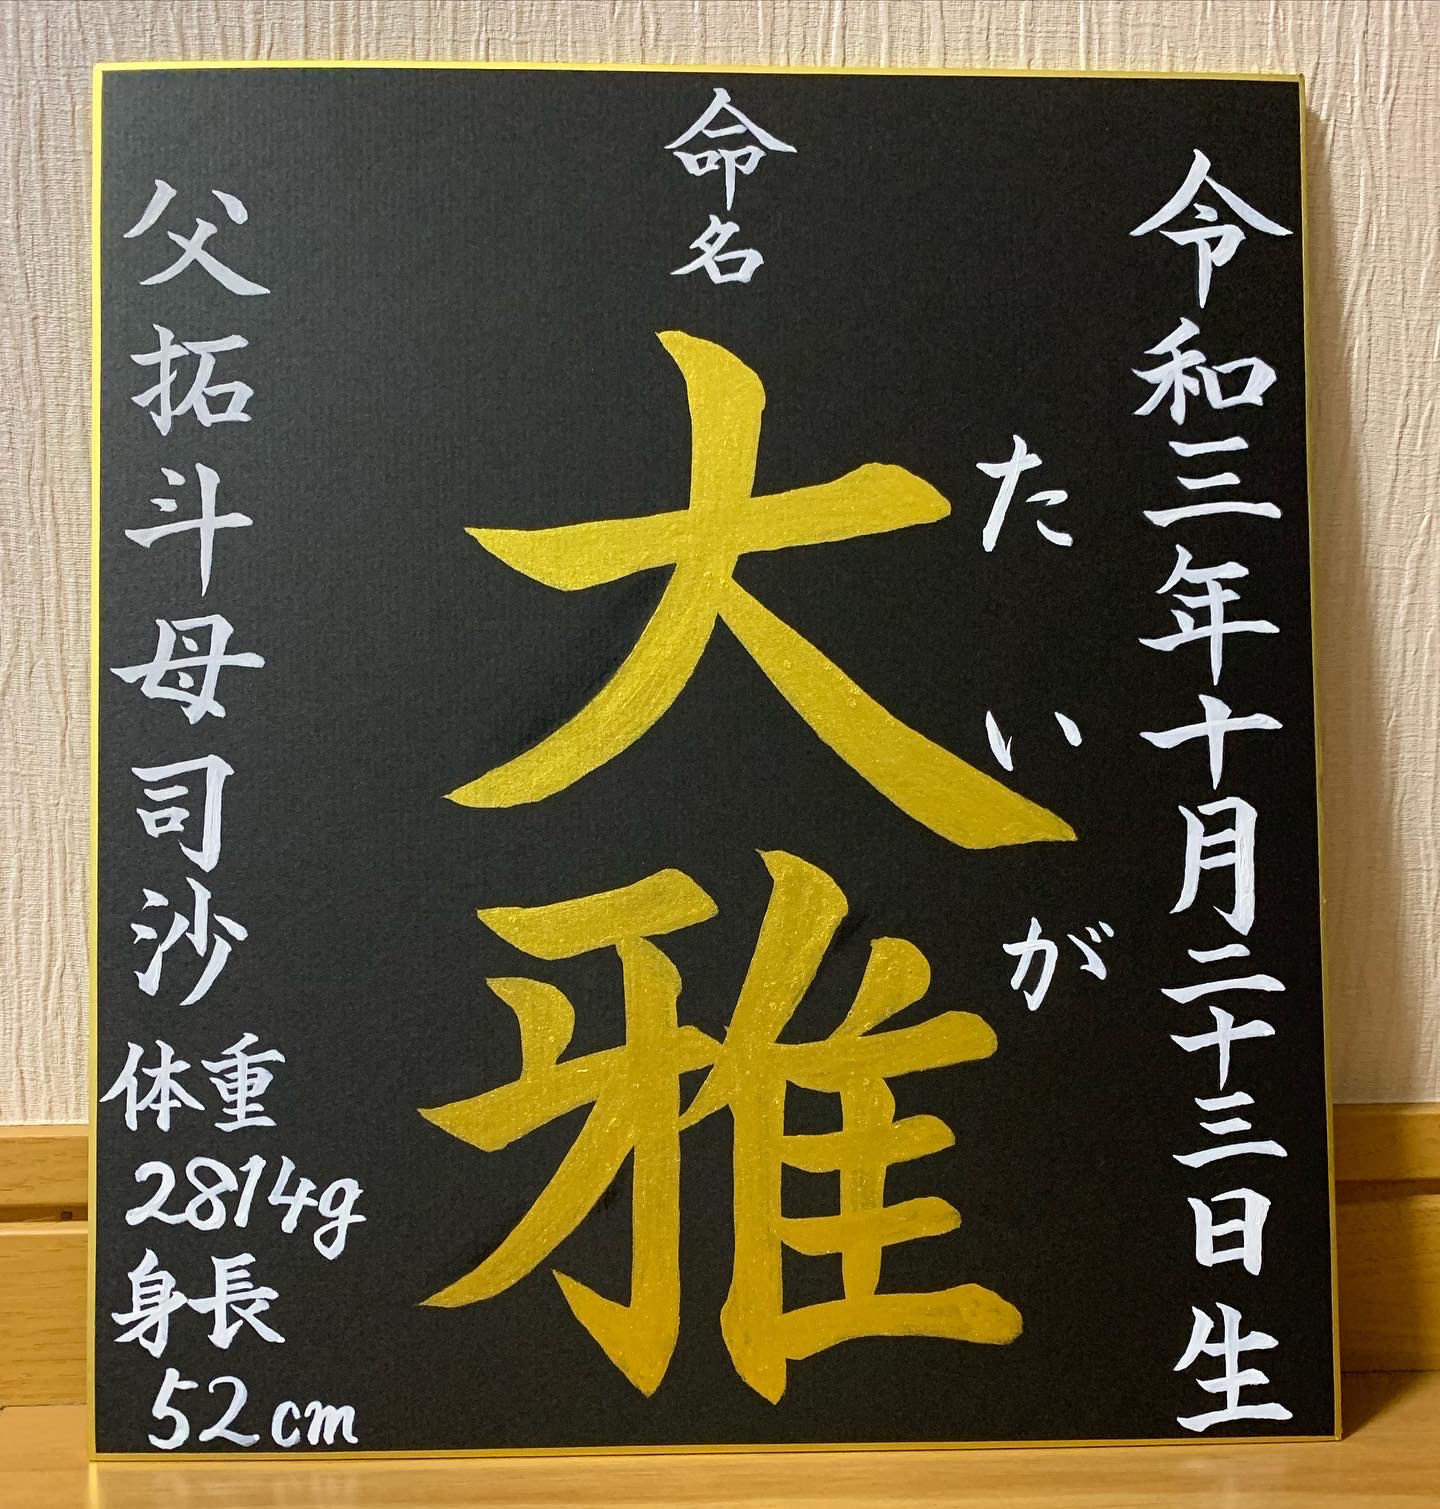 令和三年十月二十三日生
命名
大雅
たいが
父拓斗母司沙
体重
2814g
身長
52cm